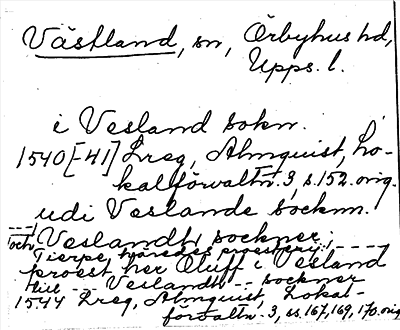 Västland, sn, Örbyhus hd,
Upps. l.
i Vesland sokn.
1540[-41] Lreg, Almquist, Lo-
kalförvaltn. 3, s. 152. orig.
udi Veslande socknn.
---- och Veslandh sockner:
Tierps, ---- 
proest her Oluff i Vesland
till --- Veslandh -- sockner
1544 Lreg, Almquist, Lokal-
förvaltn. 3, ss. 167, 169, 170. orig